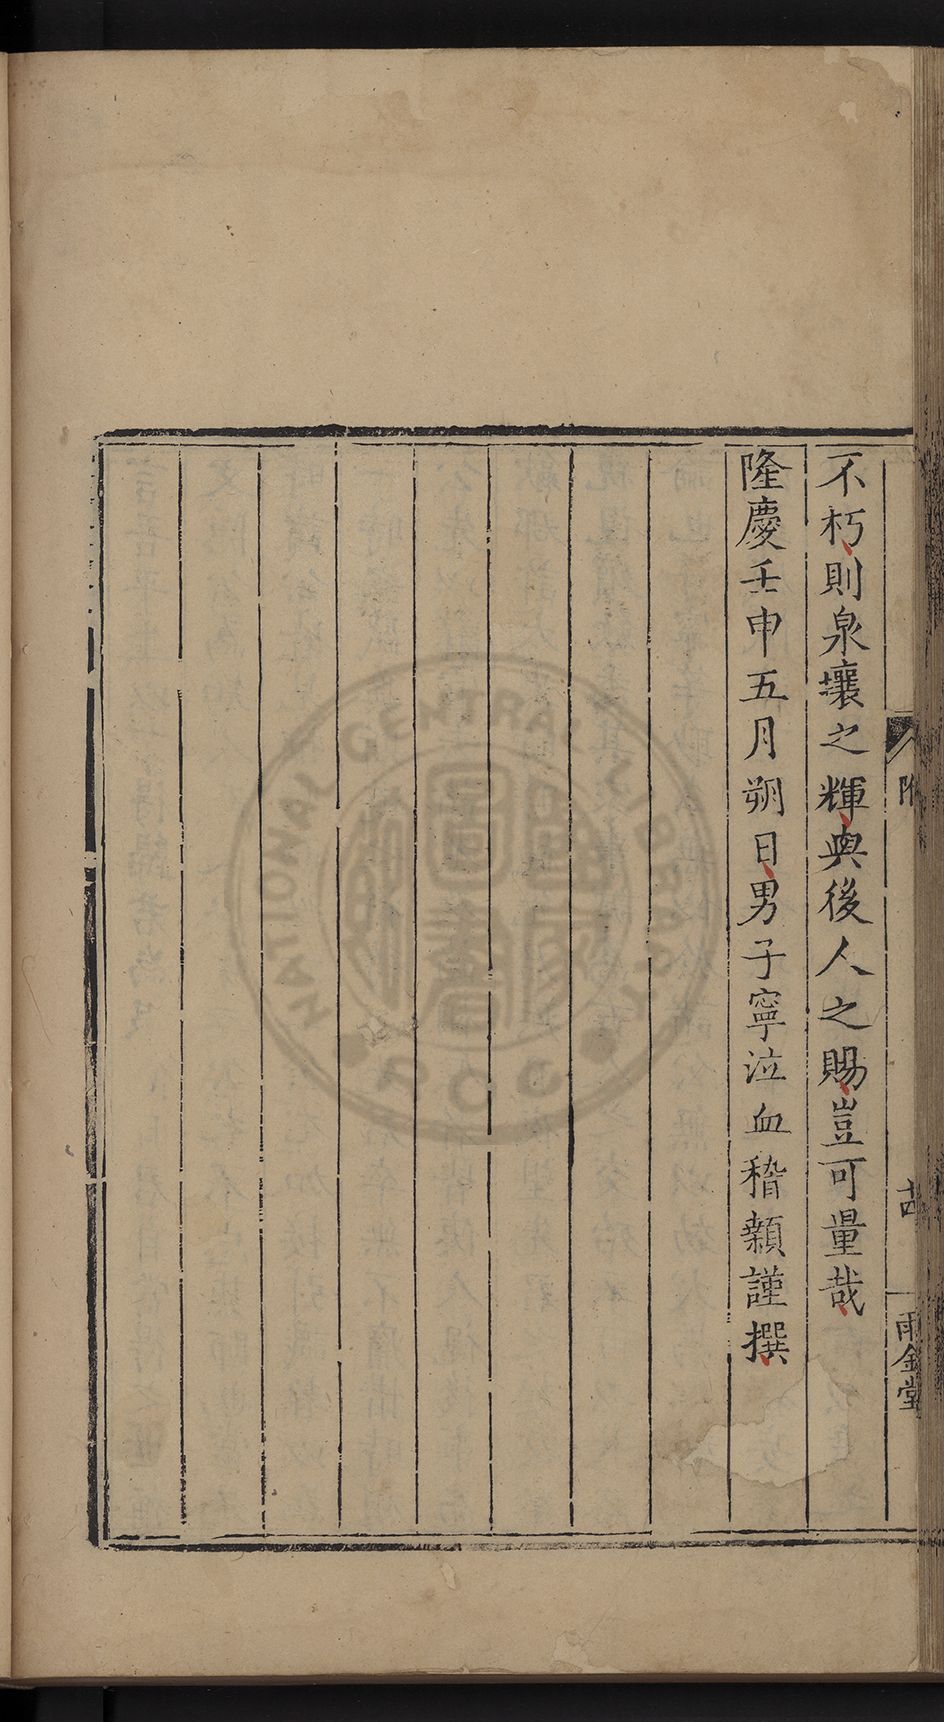 不朽則泉壤之輝與後人之賜豈可量哉
隆慶壬申五月朔日男子寧泣血稽顙謹撰
附
雨金堂
NATIONAL CENTRAL LIBRARY
R.O.C.
國家圖書館